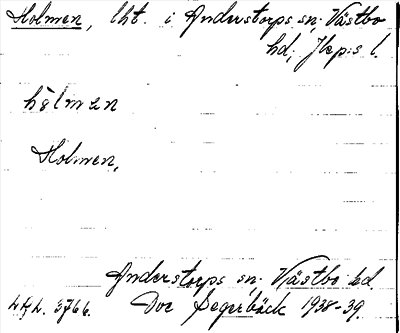 Holmen, lht. i Anderstorps sn; Västbo
hd; Jkp:s l.
hòlmen
Holmen,
Anderstorps sn. Västbo hd
Segerbäck 1938-39.
3766.